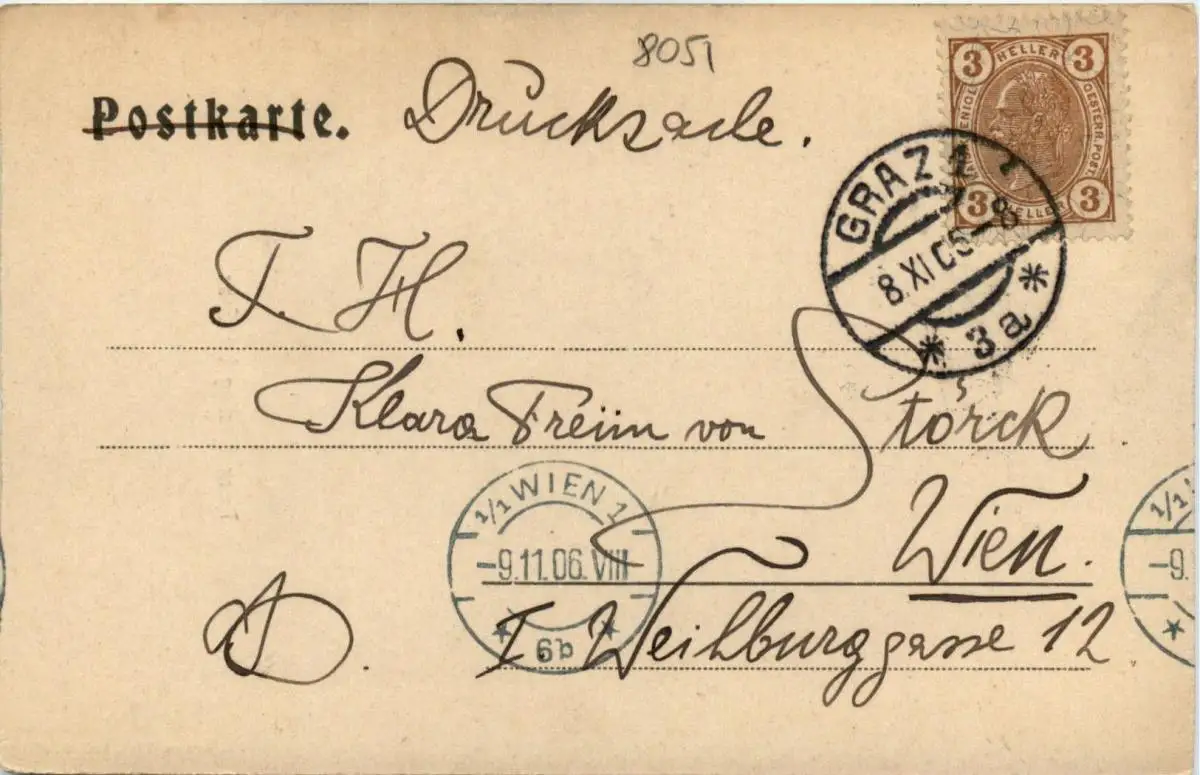 8051
Postkarte. Drucksache.
3 HELLER 3
OESTERR. POST.
3 HELLER 3
GRAZ 1
8. XI 05
* 3a *
T. H.
Klara Freiin von Störck
Wien.
1/1 WIEN 1
-9.11.06. VIII
* 6b *
I. Weihburggasse 12
1/1
-9.
*